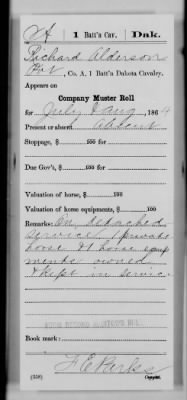 A | 1 Batt'n Cav. | Dak.
Richard Alderson
Pvt, Co. A, 1 Batt'n Dakota Cavalry.
Appears on
Company Muster Roll
for July & Aug, 1864
Present or absent Absent
Stoppage, $ 100 for
Due Gov't, $ 100 for
Valuation of horse, $ 100
Valuation of horse equipments, $ 100
Remarks: On detached
service, private
horse & horse equip
ments owned
& kept in service
Book mark:
(358) Copyist.